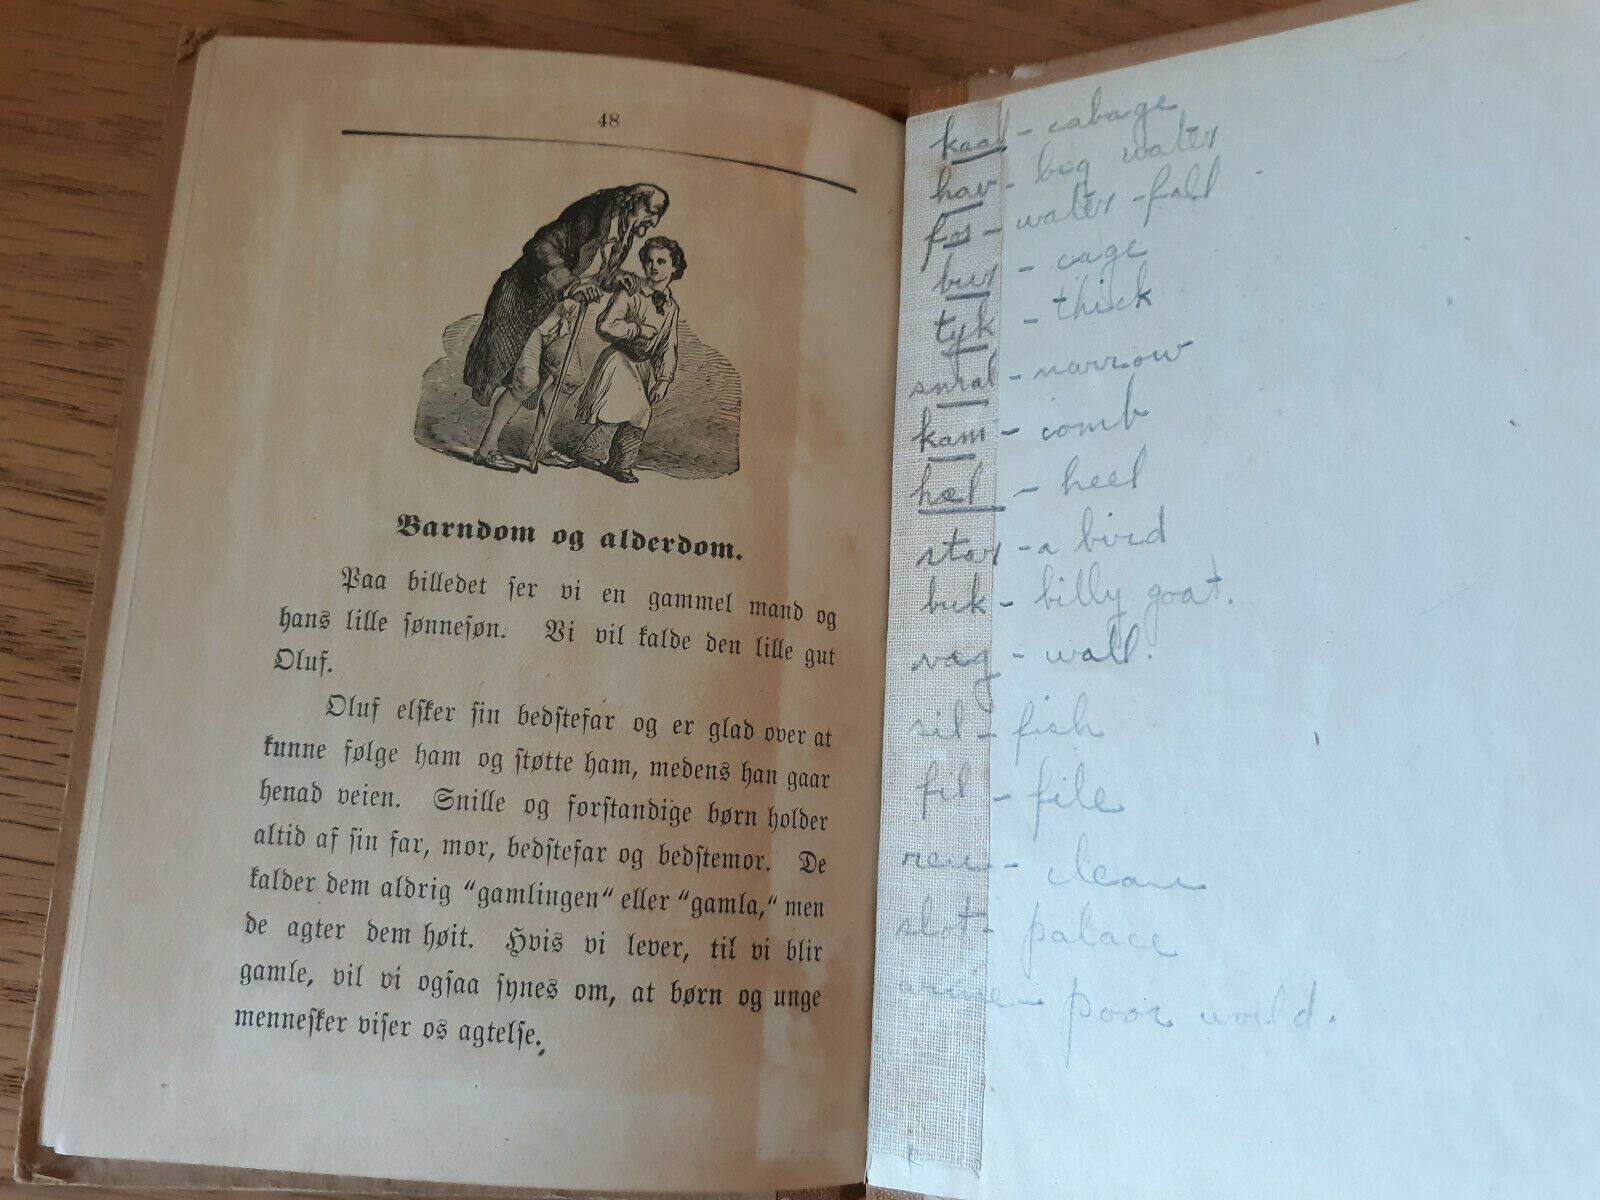 48
Barndom og alderdom.
Paa billedet ser vi en gammel mand og
hans lille sønnesøn. Vi vil kalde den lille gut
Oluf.
Oluf elsker sin bedstefar og er glad over at
kunne følge ham og støtte ham, medens han gaar
henad veien. Snille og forstandige børn holder
altid af sin far, mor, bedstefar og bedstemor. De
kalder dem aldrig "gamlingen" eller "gamla," men
de agter dem høit. Hvis vi lever, til vi blir
gamle, vil vi ogsaa synes om, at børn og unge
mennesker viser os agtelse.
kaal - cabage
hav - big water
fos - water-fall
bur - cage
tyk - thick
smal - narrow
kam - comb
hæl - heel
stær - a bird
buk - billy goat.
væg - wall.
sil - fish
fil - file
ren - clean
slot - palace
poor world.